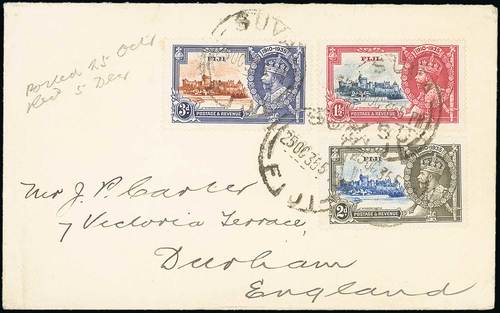 Posted 25 Oct
Rec'd 5 Dec
SUVA
1910-1935
FIJI
3d
POSTAGE & REVENUE
1910-1935
FIJI
1½d
POSTAGE & REVENUE
25 OC 35
FIJI
1910-1935
FIJI
2d
POSTAGE & REVENUE
Mr J. P. Carter
7 Victoria Terrace,
Durham
England